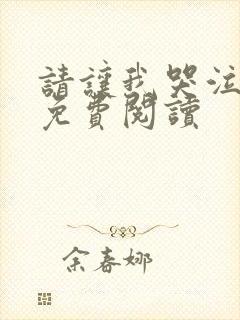 請讓我哭泣
免費閱讀
余春娜